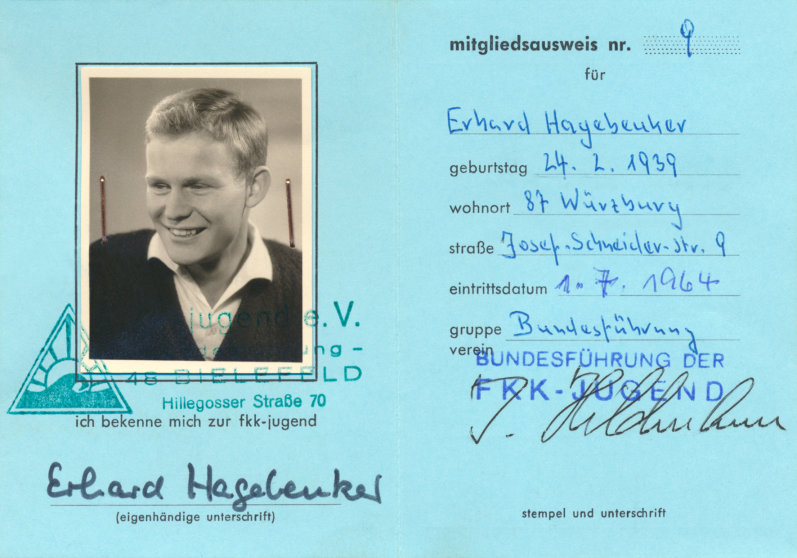 jugend e.V.
ung -
48 BIELEFELD
Hillegosser Straße 70
ich bekenne mich zur fkk-jugend
Erhard Hagebenker
(eigenhändige unterschrift)
mitgliedsausweis nr. 9
für
Erhard Hagebenker
geburtstag 24. 2. 1939
wohnort 87 Würzburg
straße Josef-Schneider-Str. 9
eintrittsdatum 1. 7. 1964
gruppe Bundesführung
verein
BUNDESFÜHRUNG DER
FKK-JUGEND
stempel und unterschrift